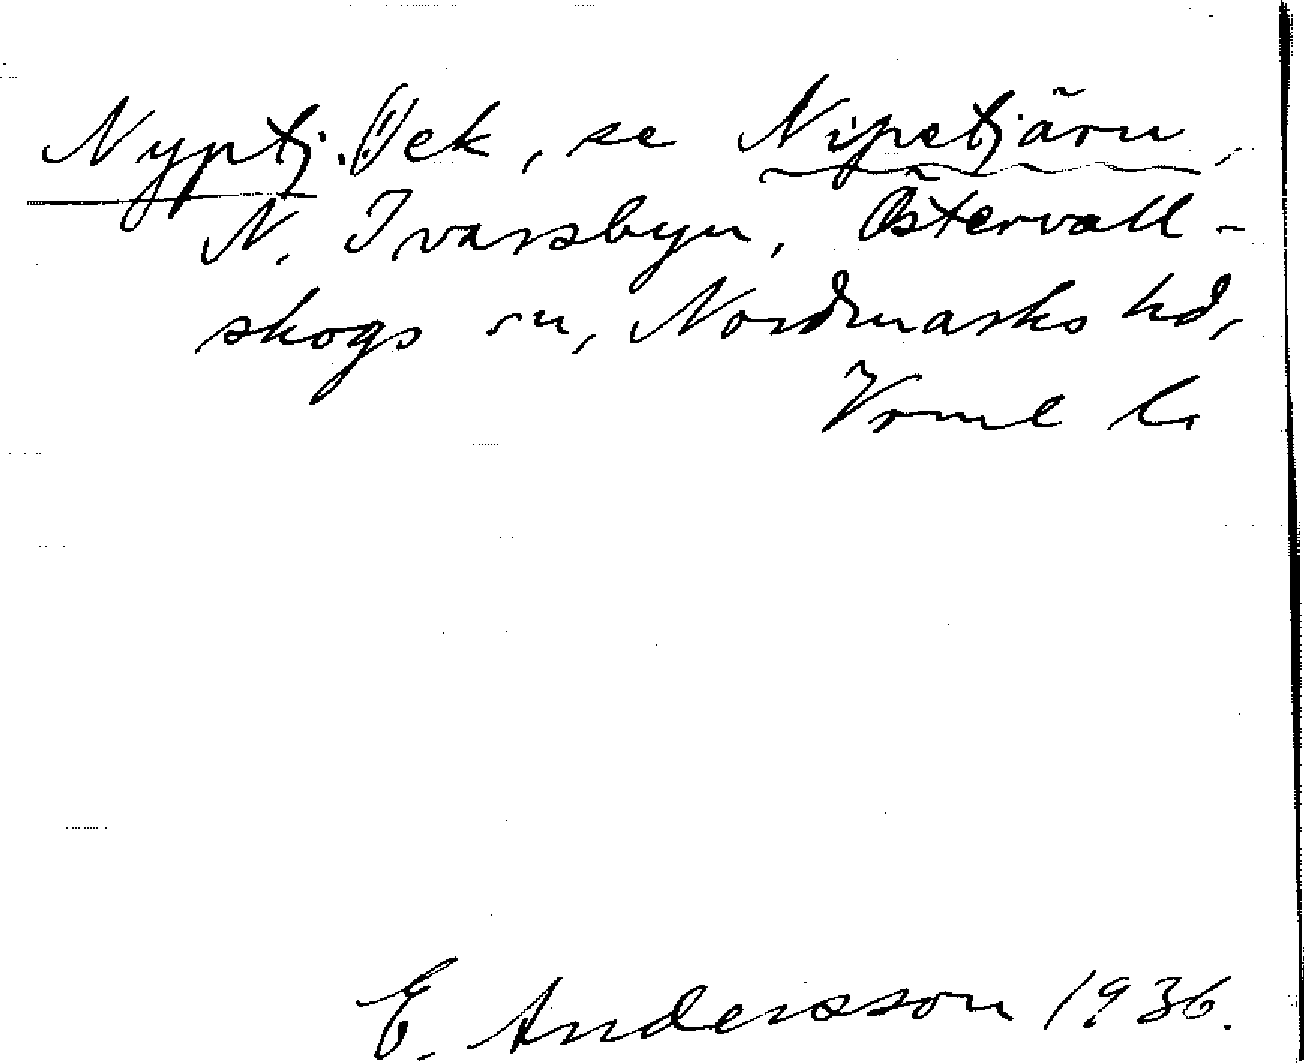 Nyptj. (:) ek, se Nipetjärn,
N. Ivarsbyn, Östervall-
skogs sn, Nordmarks hd,
Vrml l.
E. Andersson 1936.